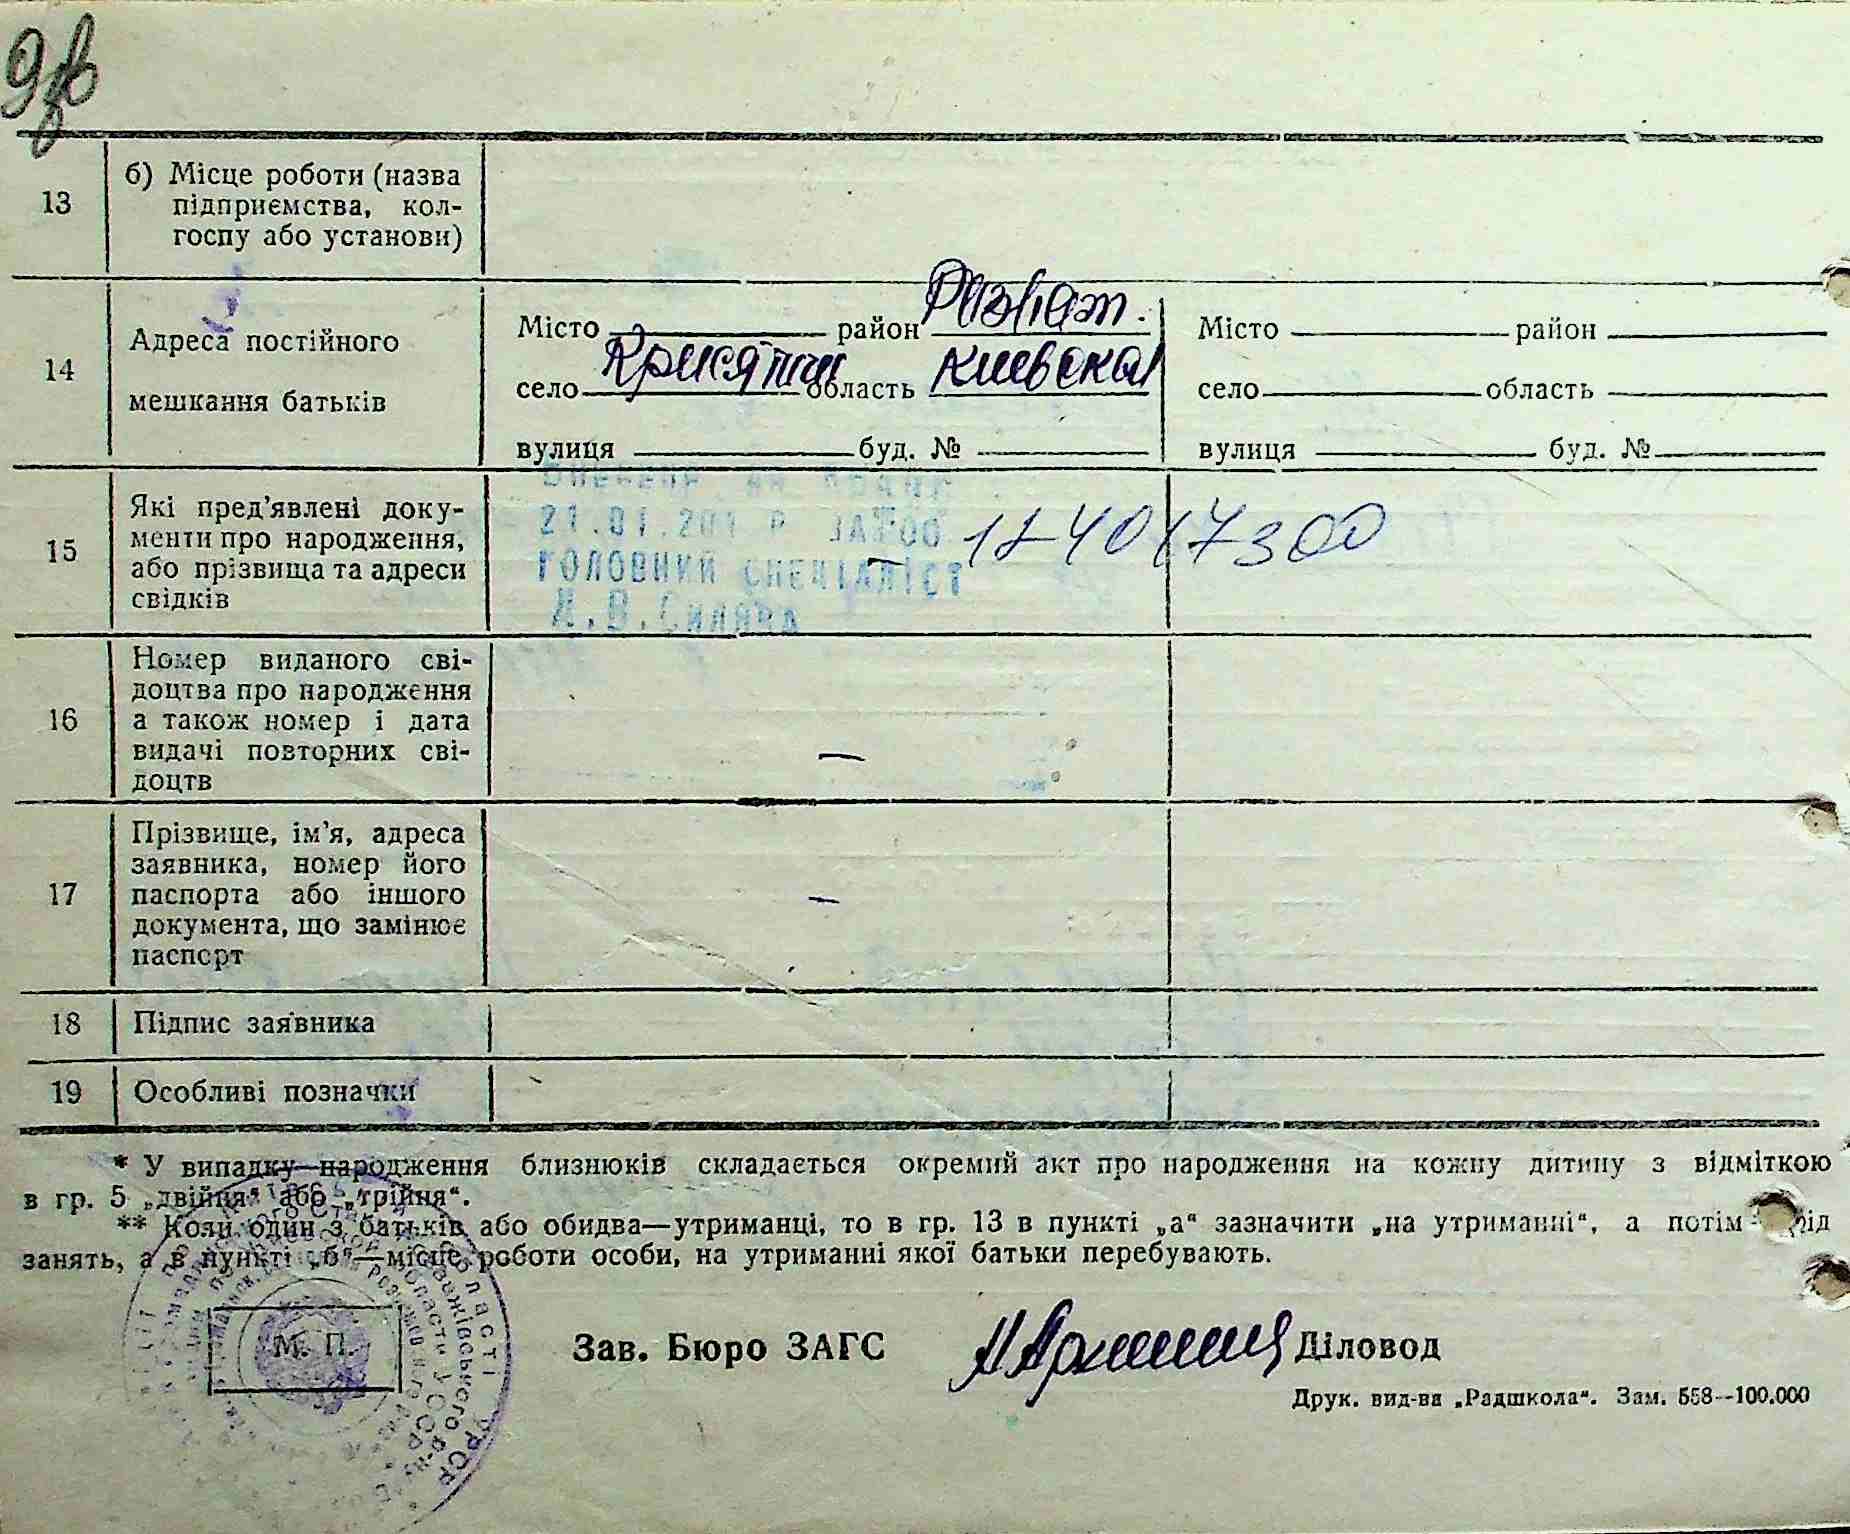 13
б) Місце роботи (назва
підприємства, кол-
госпу або установи)
14
Адреса постійного
мешкання батьків
Місто район Розваж.
село область Киевская
вулиця буд. №
Місто район
село область
вулиця буд. №
15
Які пред’явлені доку-
менти про народження,
або прізвища та адреси
свідків
ГОЛОВНИЙ СПЕЦІАЛІСТ
16
Номер виданого сві-
доцтва про народження
а також номер і дата
видачі повторних сві-
доцтв
—
17
Прізвище, ім’я, адреса
заявника, номер його
паспорта або іншого
документа, що замінює
паспорт
—
18
Підпис заявника
19
Особливі позначки
* У випадку народження близнюків складається окремий акт про народження на кожну дитину з відміткою
в гр. 5 „двійня“ або „трійня“.
** Коли один з батьків або обидва—утриманці, то в гр. 13 в пункті „а“ зазначити „на утриманні“, а потім рід
занять, а в пункті „б“—місце роботи особи, на утриманні якої батьки перебувають.
М. П.
Зав. Бюро ЗАГС Діловод
Друк. вид-ва „Радшкола“. Зам. 558—100.000